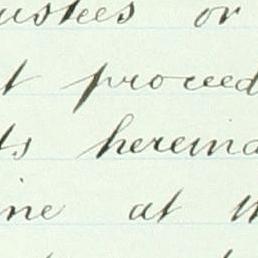 ustees or
t proceed
ts herein
ine at th